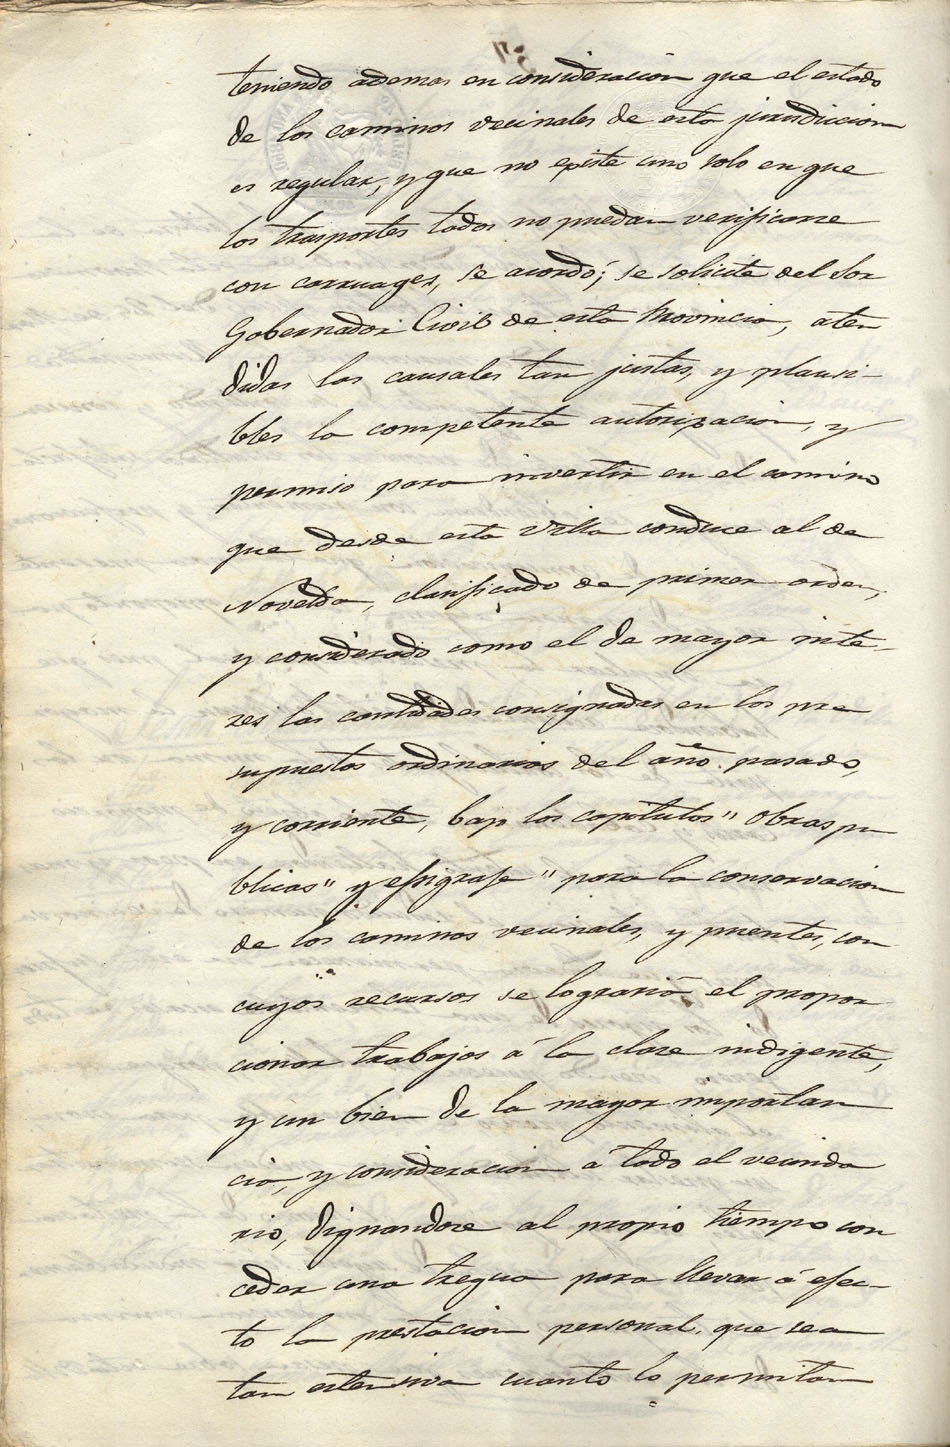 teniendo ademas en consideracion que el estado
de los caminos vecinales de esta jurisdiccion
es regular, y que no existe uno solo en que
los trasportes todos no puedan verificarse
con carruages, se acordó; se solicite del Sor
Gobernador Civil de esta Provincia, aten
didas las causales tan justas, y plausi-
bles la competente autorizacion, y
permiso para invertir en el camino
que desde esta Villa conduce al de
Novelda, clasificado de primer orden,
y considerado como el de mayor inte-
res las cantidades consignadas en los pre
supuestos ordinarios del año pasado,
y corriente, bajo los capitulos "Obras pu
blicas" y epigrafe "para la conservacion
de los caminos vecinales, y puentes, con
cuyos recursos se lograria el propor
cionar trabajos á la clase indigente,
y un bien de la mayor importan
cia, y consideracion á todo el vecinda
rio, dignandose al propio tiempo con
ceder una tregua para llevar á efec-
to la prestacion personal, que sea
tan estensiva cuanto lo permitan